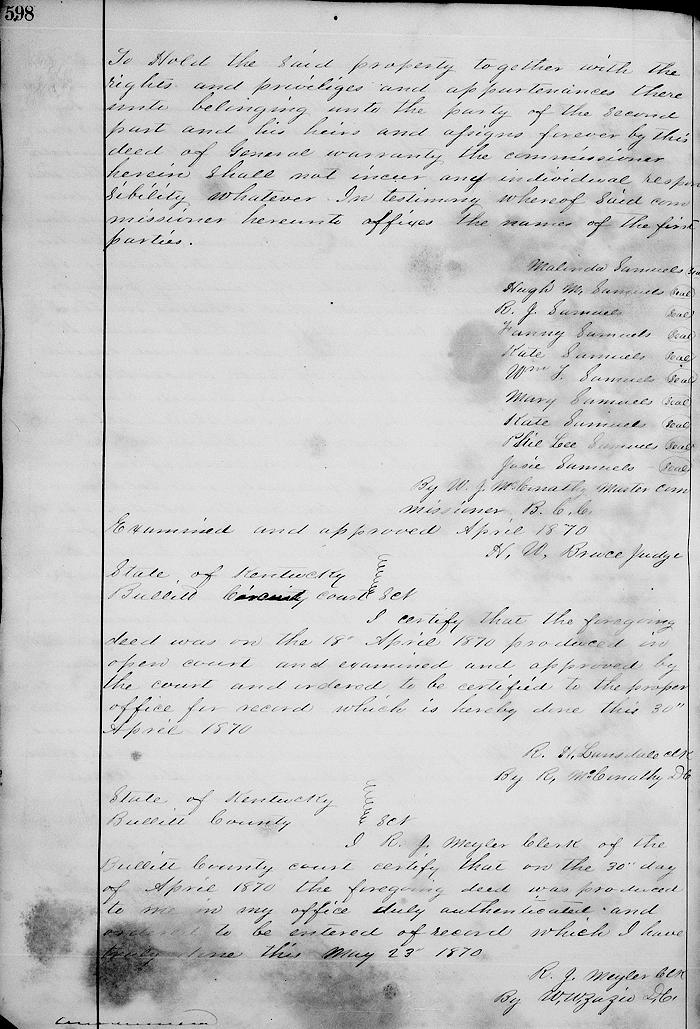 598
To Hold the said property together with the
rights and priviliges and appurtenances there
unto belinging unto the party of the second
part and his heirs and assigns forever by this
deed of General warranty the commissioner
herein shall not incur any individual respon
sibility whatever In testimony whereof said com
missioner hereunto affixes the names of the first
parties.
Malinda Samuels Seal
Hugh M. Samuels Seal
R. J. Samuels Seal
Fanny Samuels Seal
Kate Samuels Seal
Wm T. Samuels Seal
Mary Samuels Seal
Kate Samuels Seal
Phil Lee Samuels Seal
Josie Samuels Seal
By W. J. McConathy Master Com
missioner B. C. C.
Examined and approved April 1870
H. W. Bruce Judge
State of Kentucky
Bullitt Circuit court Sct
I certify that the foregoing
deed was on the 18" April 1870 produced in
open court and examined and approved by
the court and ordered to be certified to the proper
office for record which is hereby done this 30"
April 1870
R. H. Lunsdale clk
By R. McConathy DC
State of Kentucky
Bullitt County Sct
I R. J. Meyler Clerk of the
Bullitt County court certify that on the 30" day
of April 1870 the foregoing deed was produced
to me in my office duly authenticated and
ordered to be entered of record which I have
truly done this May 23" 1870
R. J. Meyler Clk
By W. W. DC.